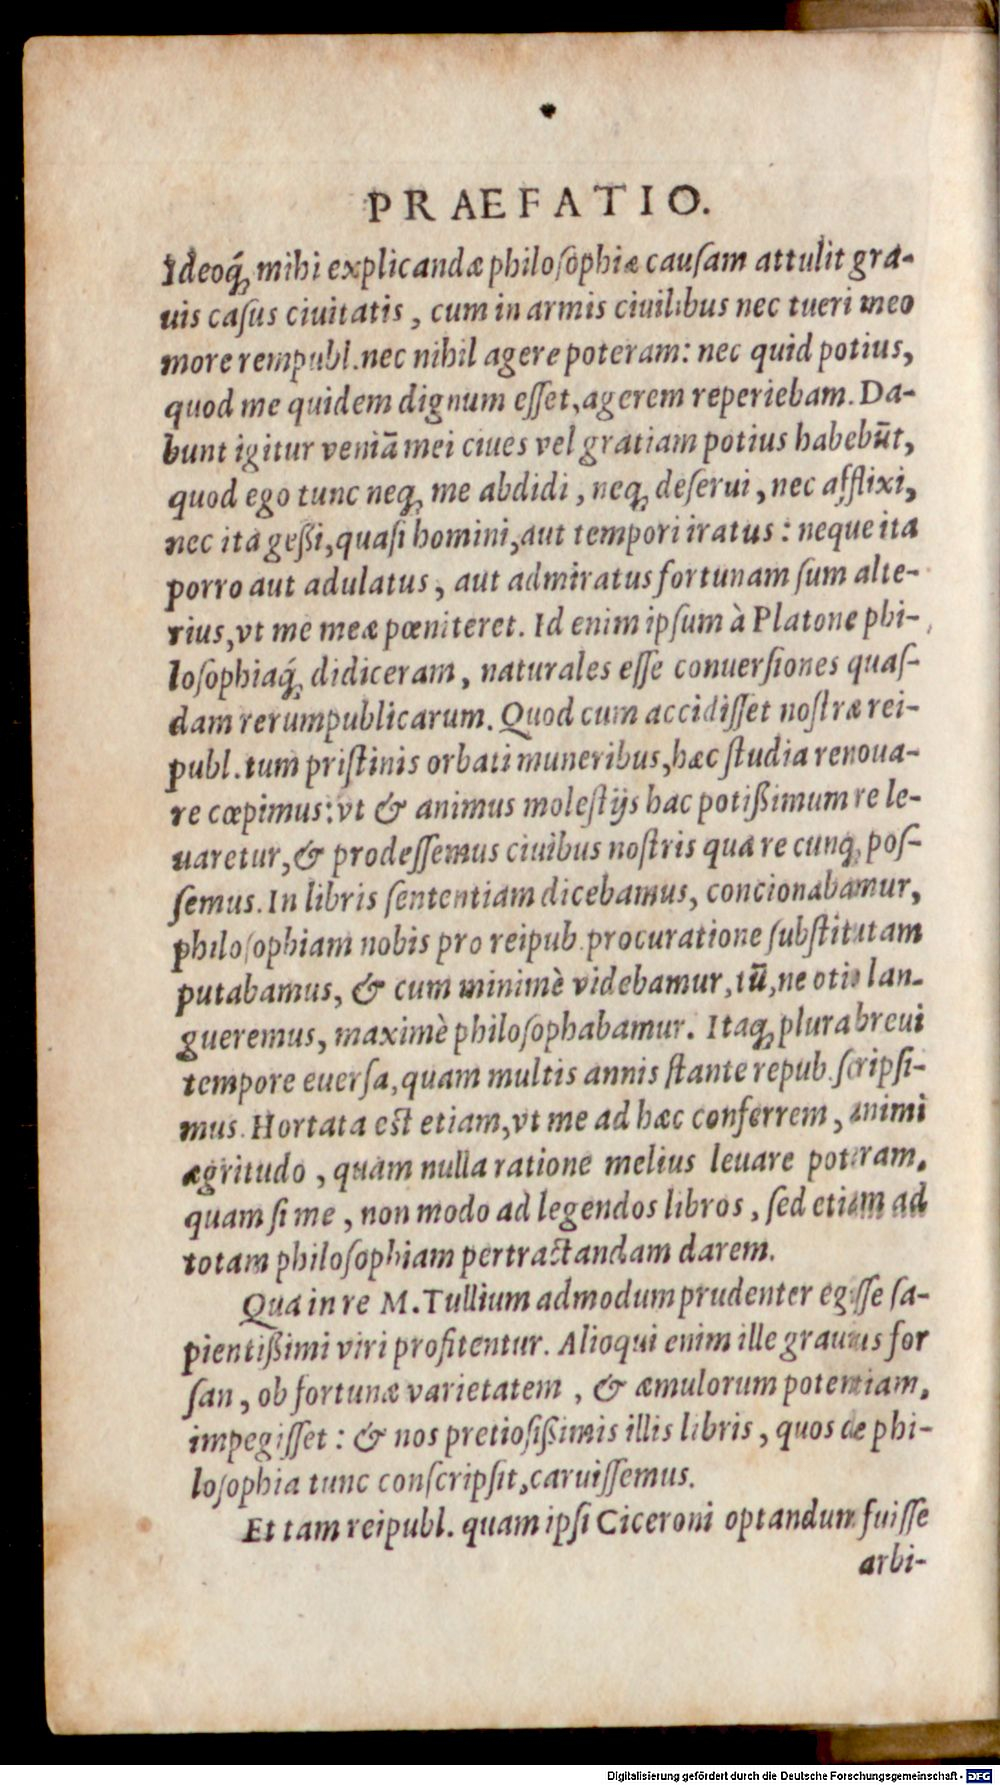 PRAEFATIO.
Ideoq́; mihi explicandæ philosophiæ causam attulit gra-
uis casus ciuitatis, cum in armis ciuilibus nec tueri meo
more rempubl. nec nihil agere poteram: nec quid potius,
quod me quidem dignum esset, agerem reperiebam. Da-
bunt igitur veniā mei ciues vel gratiam potius habebūt,
quod ego tunc neq; me abdidi, neq; deserui, nec afflixi,
nec ita geßi, quasi homini, aut tempori iratus: neque ita
porro aut adulatus, aut admiratus fortunam sum alte-
rius, vt me meæ pœniteret. Id enim ipsum à Platone phi-
losophiaq́; didiceram, naturales esse conuersiones quas-
dam rerumpublicarum. Quod cum accidisset nostræ rei-
publ. tum pristinis orbati muneribus, hæc studia renoua-
re cœpimus: vt & animus molestijs hac potißimum re le-
uaretur, & prodessemus ciuibus nostris qua re cunq; pos-
semus. In libris sententiam dicebamus, concionabamur,
philosophiam nobis pro reipub. procuratione substitutam
putabamus, & cum minimè videbamur, tū, ne otio lan-
gueremus, maximè philosophabamur. Itaq; plura breui
tempore euersa, quam multis annis stante repub. scripsi-
mus. Hortata est etiam, vt me ad hæc conferrem, animi
ægritudo, quam nulla ratione melius leuare poteram,
quam si me, non modo ad legendos libros, sed etiam ad
totam philosophiam pertractandam darem.
Qua in re M. Tullium admodum prudenter egisse sa-
pientißimi viri profitentur. Alioqui enim ille grauius for
san, ob fortunæ varietatem, & æmulorum potentiam,
impegisset: & nos pretiosißimis illis libris, quos de phi-
losophia tunc conscripsit, caruissemus.
Et tam reipubl. quam ipsi Ciceroni optandum fuisse
arbi-
Digitalisierung gefördert durch die Deutsche Forschungsgemeinschaft - DFG